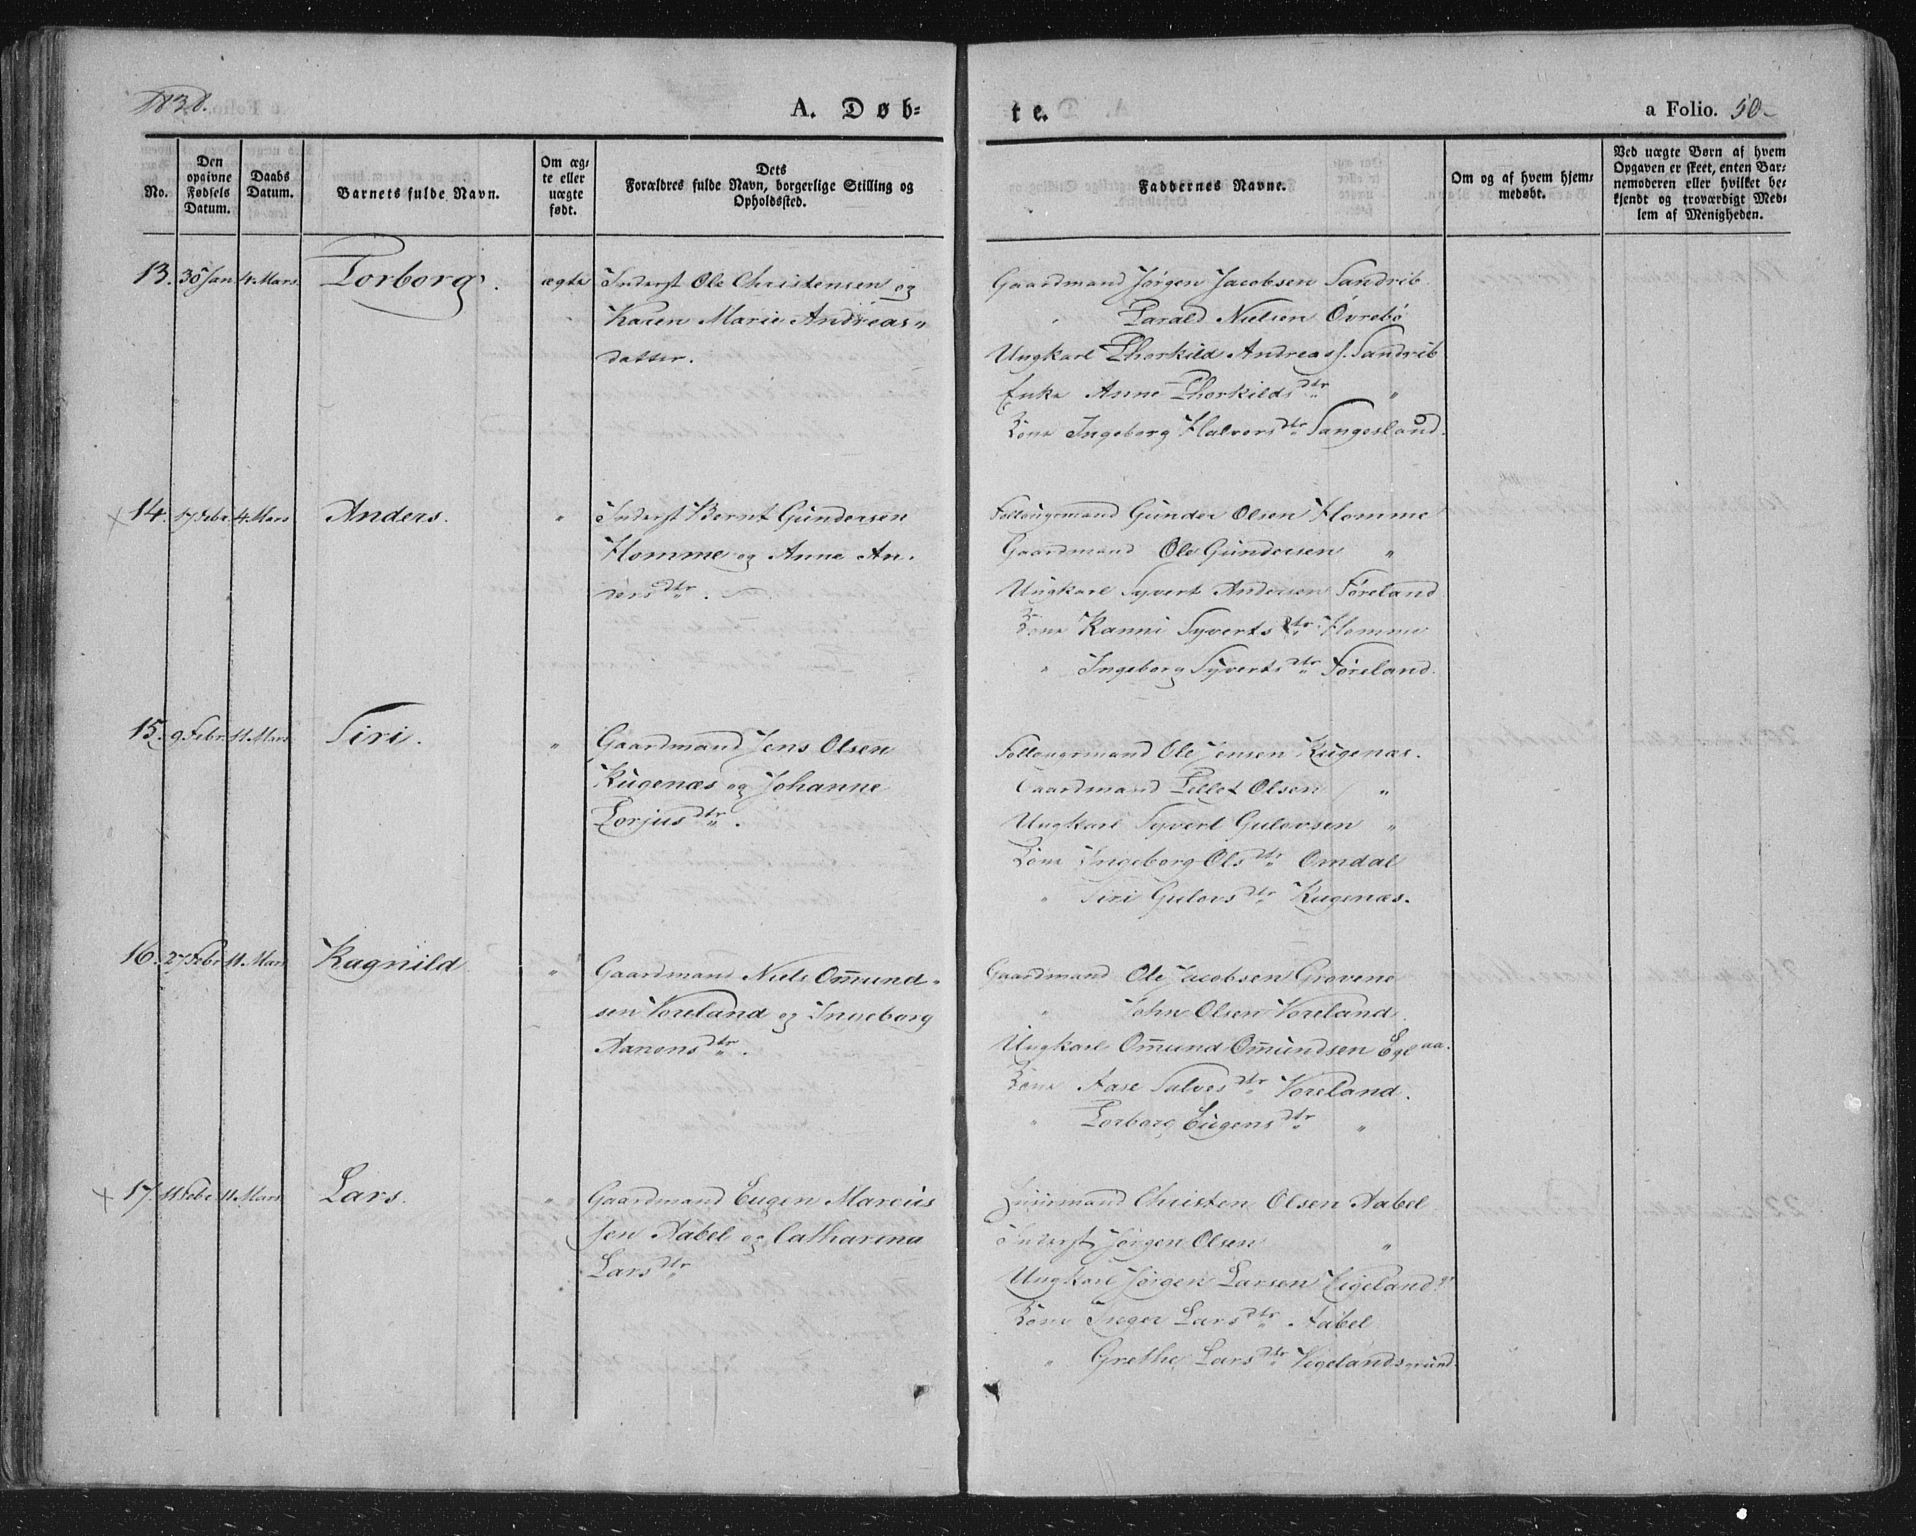 1838.
A. Døb-
te.
a Folio. 50-
No.
Den opgivne Fødsels Datum.
Daabs Datum.
Barnets fulde Navn.
Om ægte eller uægte født.
Dets
Forældres fulde Navn, borgerlige Stilling og
Opholdssted.
Faddernes Navne.
Om og af hvem hjem-
medøbt.
Ved uægte Børn af hvem
Opgaven er skeet, enten Bar-
nemoderen eller hvilket be-
kjendt og troværdigt Med-
lem af Menigheden.
13. 30 Jan 4. Mars Torborg. ægte Inderst Ole Christensen og
Karen Marie Andreas"
datter.
Gaardmand Jørgen Jacobsen Sandrib
" Tarald Nielsen Øvrebø
Ungkarl Thorkild Andreass. Sandrib
Enke Anne Thorkilds dtr "
Kone Ingeborg Halvors dtr Sangesland.
14. 17 Febr. 4. Mars Anders. " Inderst Bernt Gundersen
Homme og Anne An-
ders dtr.
Follougsmand Gunder Olsen Homme
Gaardmand Ole Gundersen "
Ungkarl Syvert Andersen Føreland
Kone Ranni Syverts dtr. Homme
" Ingeborg Syverts dtr Føreland.
15. 9 Febr. 11. Mars Siri. " Gaardmand Jens Olsen
Rugenæs og Johanne
Torjus dtr.
Follougsmand Ole Jensen Rugenæs.
Gaardmand Tellef Olsen "
Ungkarl Syvert Gulovsen "
Kone Ingeborg Ols dtr Omdal
" Siri Gulovs dtr Rugenæs.
16. 27 Febr 11. Mars Ragnild " Gaardmand Niels Omund-
sen Voreland og Ingeborg
Aanons dtr.
Gaardmand Ole Jacobsen Grovene
" John Olsen Voreland.
Ungkarl Omund Omundsen Eglaa.
Kone Aase Salves dtr Voreland.
" Torborg Eugens dtr "
17. 11 Febr 11. Mars Lars. " Gaardmand Eugen Marcus
sen Aabel og Catharina
Lars dtr
Huusmand Christen Olsen Aabel
Inderst Jørgen Olsen "
Ungkarl Jørgen Larsen Vigelandsgr
Kone Inger Lars dtr Aabel
" Grethe Lars dtr Vigelandsgrund.